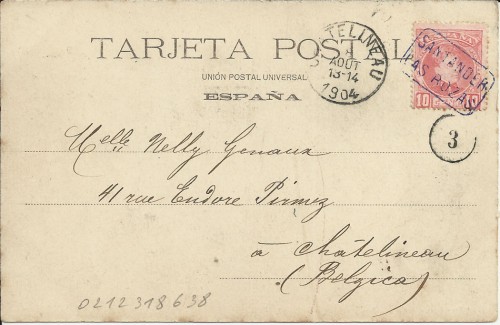 TARJETA POSTAL
UNIÓN POSTAL UNIVERSAL
ESPAÑA
CHATELINEAU
AOUT
13-14
1904
ESPAÑA
SANTANDER
LAS ROZAS
10 10
3
Melle Nelly Genaux
41 rue Endore Pirmez
à Châtelineau
(Belgica)
0212318638